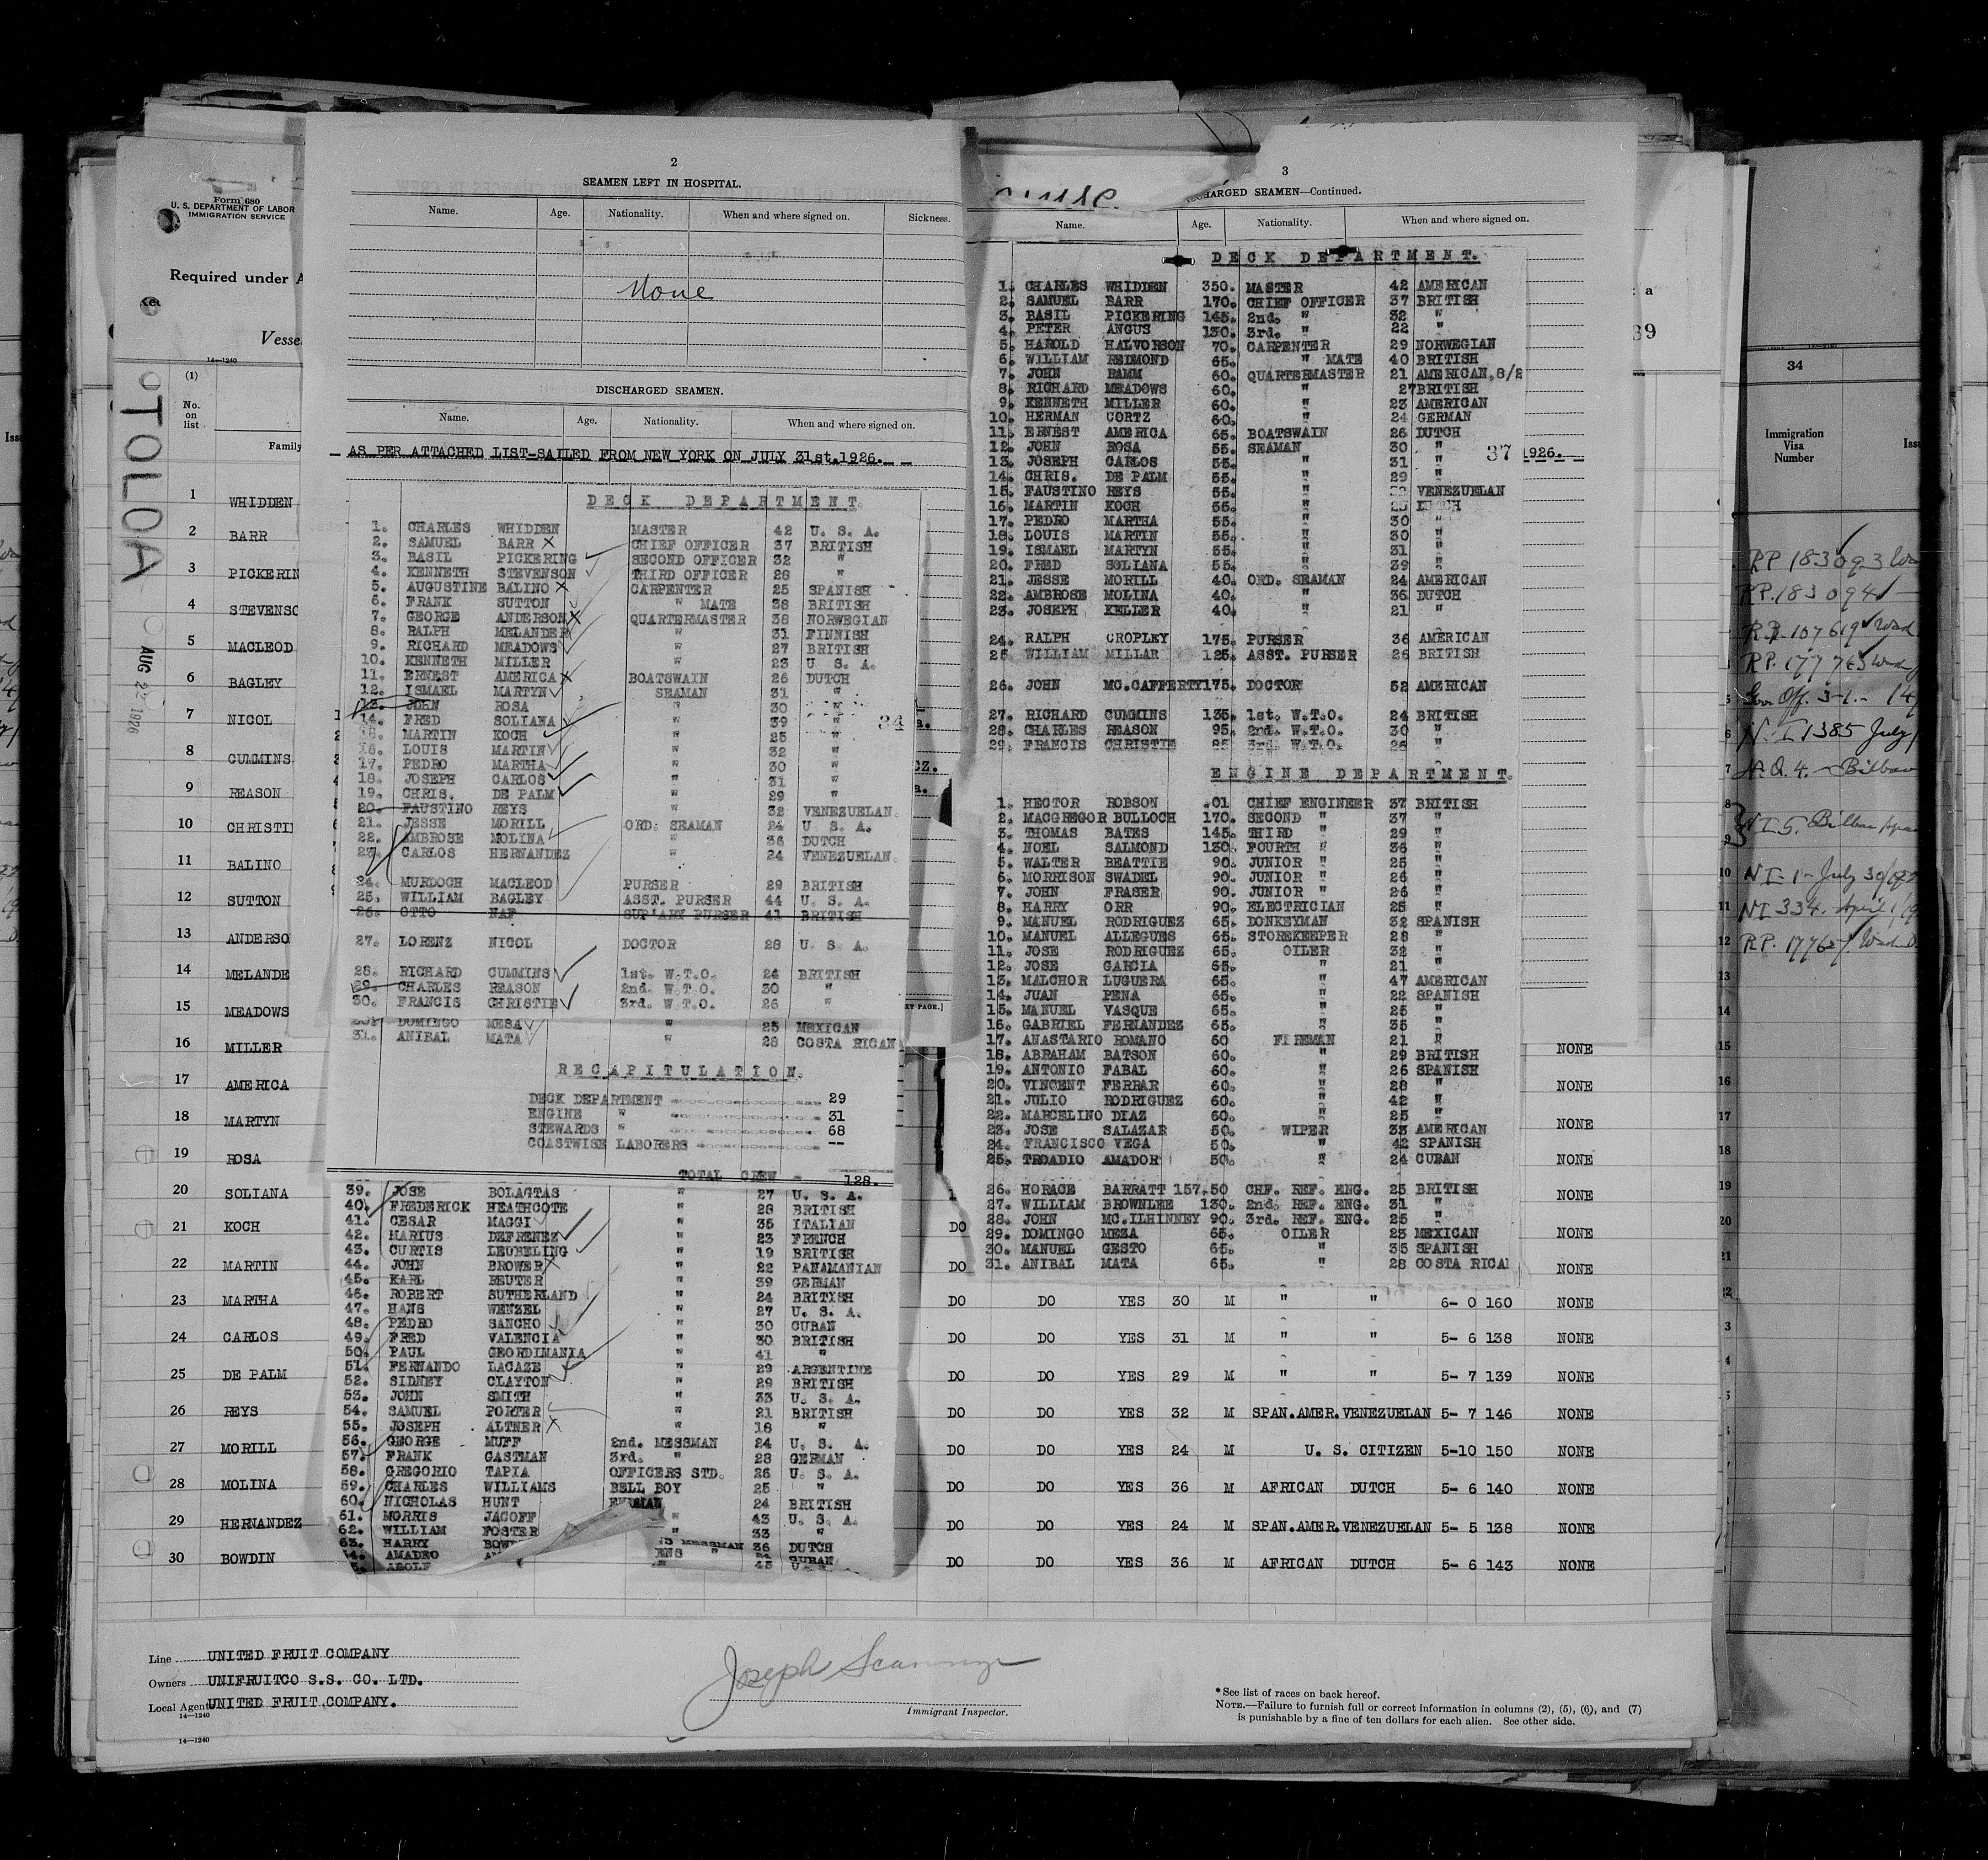 Form 680
U. S. DEPARTMENT OF LABOR
IMMIGRATION SERVICE
Required under A
Vesse
14—1240
(1)
No.
on
list
Family
TOLOA
AUG 22 1926
1 WHIDDEN
2 BARR
3 PICKERIN
4 STEVENSO
5 MACLEOD
6 BAGLEY
7 NICOL
8 CUMMINS
9 REASON
10 CHRISTI
11 BALINO
12 SUTTON
13 ANDERSO
14 MELANDE
15 MEADOWS
16 MILLER
17 AMERICA
18 MARTYN
19 ROSA
20 SOLIANA
21 KOCH
22 MARTIN
23 MARTHA
24 CARLOS
25 DE PALM
26 REYS
27 MORILL
28 MOLINA
29 HERNANDEZ
30 BOWDIN
2
SEAMEN LEFT IN HOSPITAL.
Name. Age. Nationality. When and where signed on. Sickness.
None
DISCHARGED SEAMEN.
Name. Age. Nationality. When and where signed on.
AS PER ATTACHED LIST-SAILED FROM NEW YORK ON JULY 31st.1926.
DECK DEPARTMENT.
1. CHARLES WHIDDEN MASTER 42 U. S. A.
2. SAMUEL BARR X CHIEF OFFICER 37 BRITISH
3. BASIL PICKERING SECOND OFFICER 32 "
4. KENNETH STEVENSON THIRD OFFICER 28 "
5. AUGUSTINE BALINO X CARPENTER 25 SPANISH
6. FRANK SUTTON " MATE 38 BRITISH
7. GEORGE ANDERSON X QUARTERMASTER 38 NORWEGIAN
8. RALPH MELANDER " 31 FINNISH
9. RICHARD MEADOWS " 27 BRITISH
10. KENNETH MILLER " 23 U S. A.
11. ERNEST AMERICA X BOATSWAIN 26 DUTCH
12. ISMAEL MARTYN SEAMAN 31 "
13. JOHN ROSA " 30 "
14. FRED SOLIANA " 39 " 34
15. MARTIN KOCH " 25 "
16. LOUIS MARTIN " 32 "
17. PEDRO MARTHA " 30 "
18. JOSEPH CARLOS " 31 "
19. CHRIS. DE PALM " 29 "
20. FAUSTINO REYS " 32 VENEZUELAN.
21. JESSE MORILL ORD. SEAMAN 24 U. S. A.
22. AMBROSE MOLINA " 36 DUTCH
23. CARLOS HERNANDEZ " 24 VENEZUELAN.
24. MURDOCH MACLEOD PURSER 29 BRITISH
25. WILLIAM BAGLEY ASST. PURSER 44 U. S. A.
26. OTTO NAF SUP'ARY PURSER 41 BRITISH
27. LORENZ NICOL DOCTOR 28 U. S. A.
28. RICHARD CUMMINS 1st. W.T.O. 24 BRITISH
29. CHARLES REASON 2nd. W.T.O. 30 "
30. FRANCIS CHRISTIE 3rd. W.T.O. 26 "
30. DOMINGO MESA " 25 MEXICAN
31. ANIBAL MATA " 28 COSTA RICAN
RECAPITULATION.
DECK DEPARTMENT 29
ENGINE " 31
STEWARDS " 68
COASTWISE LABORERS --
TOTAL CREW - 128.
39. JOSE BOLAGTAS " 27 U. S. A.
40. FREDERICK HEATHCOTE " 28 BRITISH
41. CESAR MAGGI " 35 ITALIAN
42. MARIUS DEFRENEZ " 23 FRENCH
43. CURTIS LEUBELING " 19 BRITISH
44. JOHN BROWER X " 22 PANAMANIAN
45. KARL REUTER " 39 GERMAN
46. ROBERT SUTHERLAND " 24 BRITISH
47. HANS WENZEL " 27 U. S. A.
48. PEDRO SANCHO " 30 CUBAN
49. FRED VALENCIA " 30 BRITISH
50. PAUL GEORDIMANIA " 41 "
51. FERNANDO LACAZE " 29 ARGENTINE
52. SIDNEY CLAYTON " 29 BRITISH
53. JOHN SMITH " 33 U. S. A.
54. SAMUEL PORTER " 21 BRITISH
55. JOSEPH ALTNER X " 18 "
56. GEORGE MUFF 2nd. MESSMAN 24 U. S. A.
57. FRANK GASTMAN 3rd. " 28 GERMAN
58. GREGORIO TAPIA OFFICERS STD. 26 U. S. A.
59. CHARLES WILLIAMS BELL BOY 25 "
60. NICHOLAS HUNT 24 BRITISH
61. MORRIS JACOFF " 43 U. S. A.
62. WILLIAM FOSTER " 33 "
63. HARRY MESSMAN 36 DUTCH
64. AMADEO CUBAN
ADOLF 43 U.
3
CHARGED SEAMEN—Continued.
Name. Age. Nationality. When and where signed on.
DECK DEPARTMENT.
1. CHARLES WHIDDEN 350. MASTER 42 AMERICAN
2. SAMUEL BARR 170. CHIEF OFFICER 37 BRITISH
3. BASIL PICKERING 145. 2nd. " 32 "
4. PETER ANGUS 130. 3rd. " 22 "
5. HAROLD HALVORSON 70. CARPENTER 29 NORWEGIAN
6. WILLIAM REDMOND 65. " MATE 40 BRITISH
7. JOHN RAMM 60. QUARTERMASTER 21 AMERICAN, 8/2
8. RICHARD MEADOWS 60. " 27 BRITISH
9. KENNETH MILLER 60. " 23 AMERICAN
10. HERMAN CORTZ 60. " 24 GERMAN
11. ERNEST AMERICA 65. BOATSWAIN 26 DUTCH
12. JOHN ROSA 55. SEAMAN 30 " 37 1926.
13. JOSEPH CARLOS 55. " 31 "
14. CHRIS. DE PALM 55. " 29 "
15. FAUSTINO REYS 55. " 32 VENEZUELAN
16. MARTIN KOCH 55. " 25 DUTCH
17. PEDRO MARTHA 55. " 30 "
18. LOUIS MARTIN 55. " 30 "
19. ISMAEL MARTYN 55. " 31 "
20. FRED SOLIANA 55. " 39 "
21. JESSE MORILL 40. ORD. SEAMAN 24 AMERICAN
22. AMBROSE MOLINA 40. " 36 DUTCH
23. JOSEPH KELLER 40. " 21 "
24. RALPH CROPLEY 175. PURSER 36 AMERICAN
25 WILLIAM MILLAR 125. ASST. PURSER 26 BRITISH
26. JOHN MC.CAFFERTY 175. DOCTOR 52 AMERICAN
27. RICHARD CUMMINS 135. 1st. W.T.O. 24 BRITISH
28. CHARLES REASON 95. 2nd. W.T.O. 30 "
29. FRANCIS CHRISTIE 85 3rd. W.T.O. 26 "
ENGINE DEPARTMENT.
1. HECTOR ROBSON .01 CHIEF ENGINEER 37 BRITISH
2. MACGREGOR BULLOCH 170. SECOND " 37 "
3. THOMAS BATES 145. THIRD " 29 "
4. NOEL SALMOND 130. FOURTH " 36 "
5. WALTER BEATTIE 90. JUNIOR " 25 "
6. MORRISON SWADEL 90. JUNIOR " 26 "
7. JOHN FRASER 90. JUNIOR " 26 "
8. HARRY ORR 90. ELECTRICIAN 25 "
9. MANUEL RODRIGUEZ 65. DONKEYMAN 32 SPANISH
10. MANUEL ALLEGUES 65. STOREKEEPER 28 "
11. JOSE RODRIGUEZ 65. OILER 32 "
12. JOSE GARCIA 65. " 21 "
13. MALCHOR LUGUERA 65. " 47 AMERICAN
14. JUAN PENA 65. " 22 SPANISH
15. MANUEL VASQUE 65. " 25 "
16. GABRIEL FERNANDEZ 65. " 35 "
17. ANASTARIO ROMANO 60 FIREMAN 21 "
18. ABRAHAM BATSON 60. " 29 BRITISH
19. ANTONIO FABAL 60. " 26 SPANISH
20. VINCENT FERRAR 60. " 28 "
21. JULIO RODRIGUEZ 60. " 42 "
22. MARCELINO DIAZ 60. " 25 "
23. JOSE SALAZAR 50. WIPER 33 AMERICAN
24. FRANCISCO VEGA 50. " 42 SPANISH
25. TROADIO AMADOR 50. " 24 CUBAN
26. HORACE BARRATT 157.50 CHF. REF. ENG. 25 BRITISH
27. WILLIAM BROWNLEE 130. 2nd. REF. ENG. 31 "
28. JOHN MC.ILHINNEY 90. 3rd. REF. ENG. 25 "
29. DOMINGO MEZA 65. OILER 23 MEXICAN
30. MANUEL GESTO 65. " 35 SPANISH
31. ANIBAL MATA 65. " 28 COSTA RICA
NONE
NONE
NONE
NONE
NONE
DO NONE
DO NONE
DO DO YES 30 M " " 6- 0 160 NONE
DO DO YES 31 M " " 5- 6 138 NONE
DO DO YES 29 M " " 5- 7 139 NONE
DO DO YES 32 M SPAN.AMER.VENEZUELAN 5- 7 146 NONE
DO DO YES 24 M U. S. CITIZEN 5-10 150 NONE
DO DO YES 36 M AFRICAN DUTCH 5- 6 140 NONE
DO DO YES 24 M SPAN.AMER.VENEZUELAN 5- 5 138 NONE
DO DO YES 36 M AFRICAN DUTCH 5- 6 143 NONE
34
Immigration
Visa
Number
Iss
RP 183093
RP. 183094
RP. 107619
RP. 177763
Gov. Off. 3-1. - 14
N.I. 1385 July
H.Q. 4. - Bilbao
NI 5. Bilbao
NI-1- July 30/
NI 334. April 1/
RP. 17762
Line UNITED FRUIT COMPANY
Owners UNIFRUITCO S.S. CO. LTD.
Local Agent UNITED FRUIT COMPANY.
14—1240
14—1240
Joseph
Immigrant Inspector.
* See list of races on back hereof.
NOTE.—Failure to furnish full or correct information in columns (2), (5), (6), and (7)
is punishable by a fine of ten dollars for each alien. See other side.